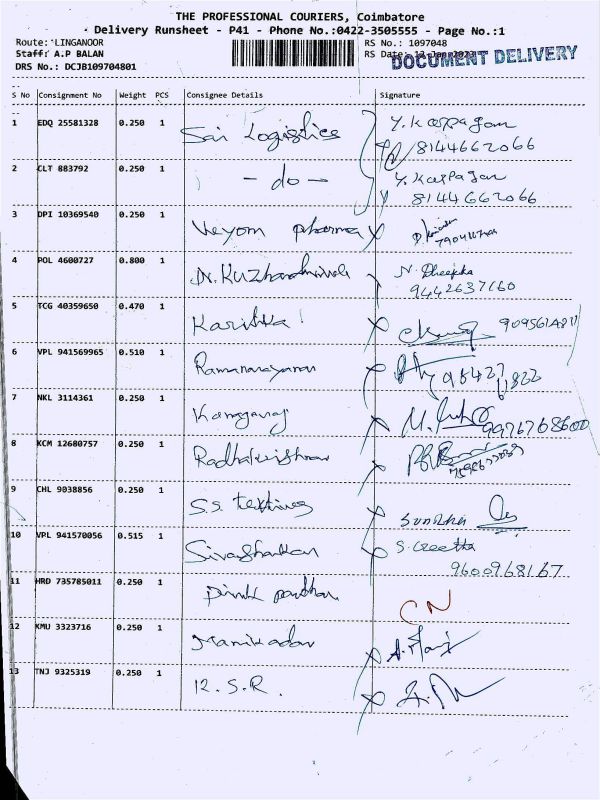 THE PROFESSIONAL COURIERS, Coimbatore
Delivery Runsheet - P41 - Phone No.:0422-3505555 - Page No.:1
Route: LINGANOOR RS No.: 1097048
Staff: A.P BALAN RS Date:
DOCUMENT DELIVERY
DRS No.: DCJB109704801
S No Consignment No Weight PCS Consignee Details Signature
1 EDQ 25581328 0.250 1 Sai Logistics Y. Karpagam
8144662066
2 CLT 883792 0.250 1 - do - Y. Karpagam
8144662066
3 DPI 10369540 0.250 1 pharma
4 POL 4600727 0.800 1 N. Dheepika
9442637160
5 TCG 40359650 0.470 1 Karthika
6 VPL 941569965 0.510 1 Ramanarayanan
7 NKL 3114361 0.250 1 Kanagaraj
9976768600
8 KCM 12680757 0.250 1 Radhakrishnan
9 CHL 9038856 0.250 1 S.S. textiles
10 VPL 941570056 0.515 1 S. Geetha
9600968167
11 HRD 735785011 0.250 1 CN
12 KMU 3323716 0.250 1
13 TNJ 9325319 0.250 1